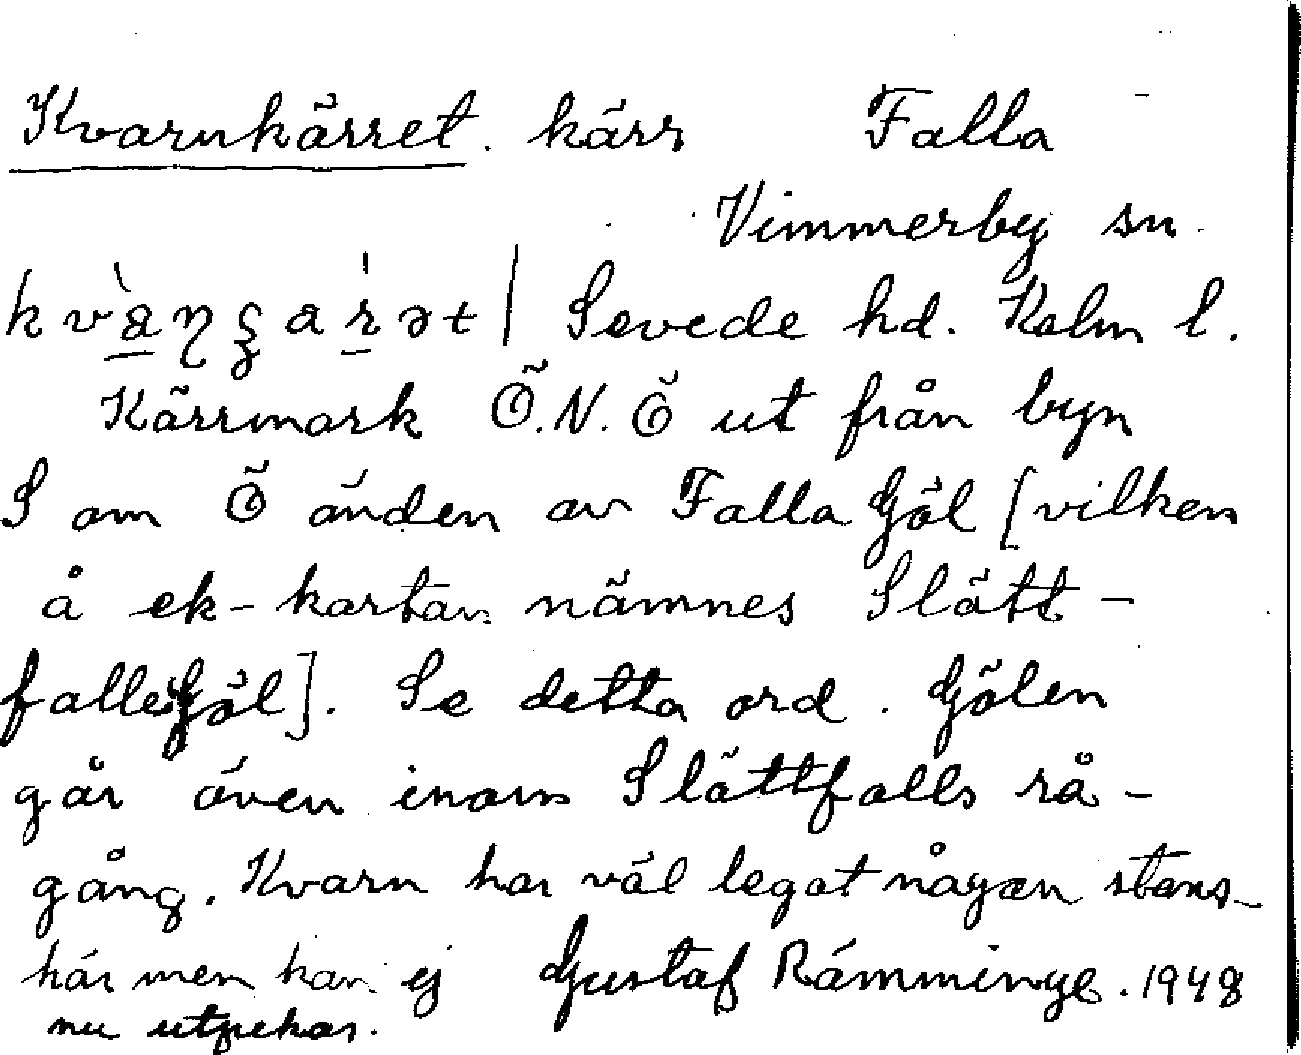 Kvarnkärret. kärr Falla
Vimmerby sn.
Sevede hd. Kalm l.
Kärrmark Ö.N.Ö ut från byn
S om Ö änden av Falla Göl [vilken
å ek-kartan nämnes Slätt-
falls Göl]. Se detta ord. Gölen
går även inom Slättfalls rå-
gång. Kvarn har väl legat någon stans-
här men kan ej Gustaf Rämminge. 1948
nu utpekas.